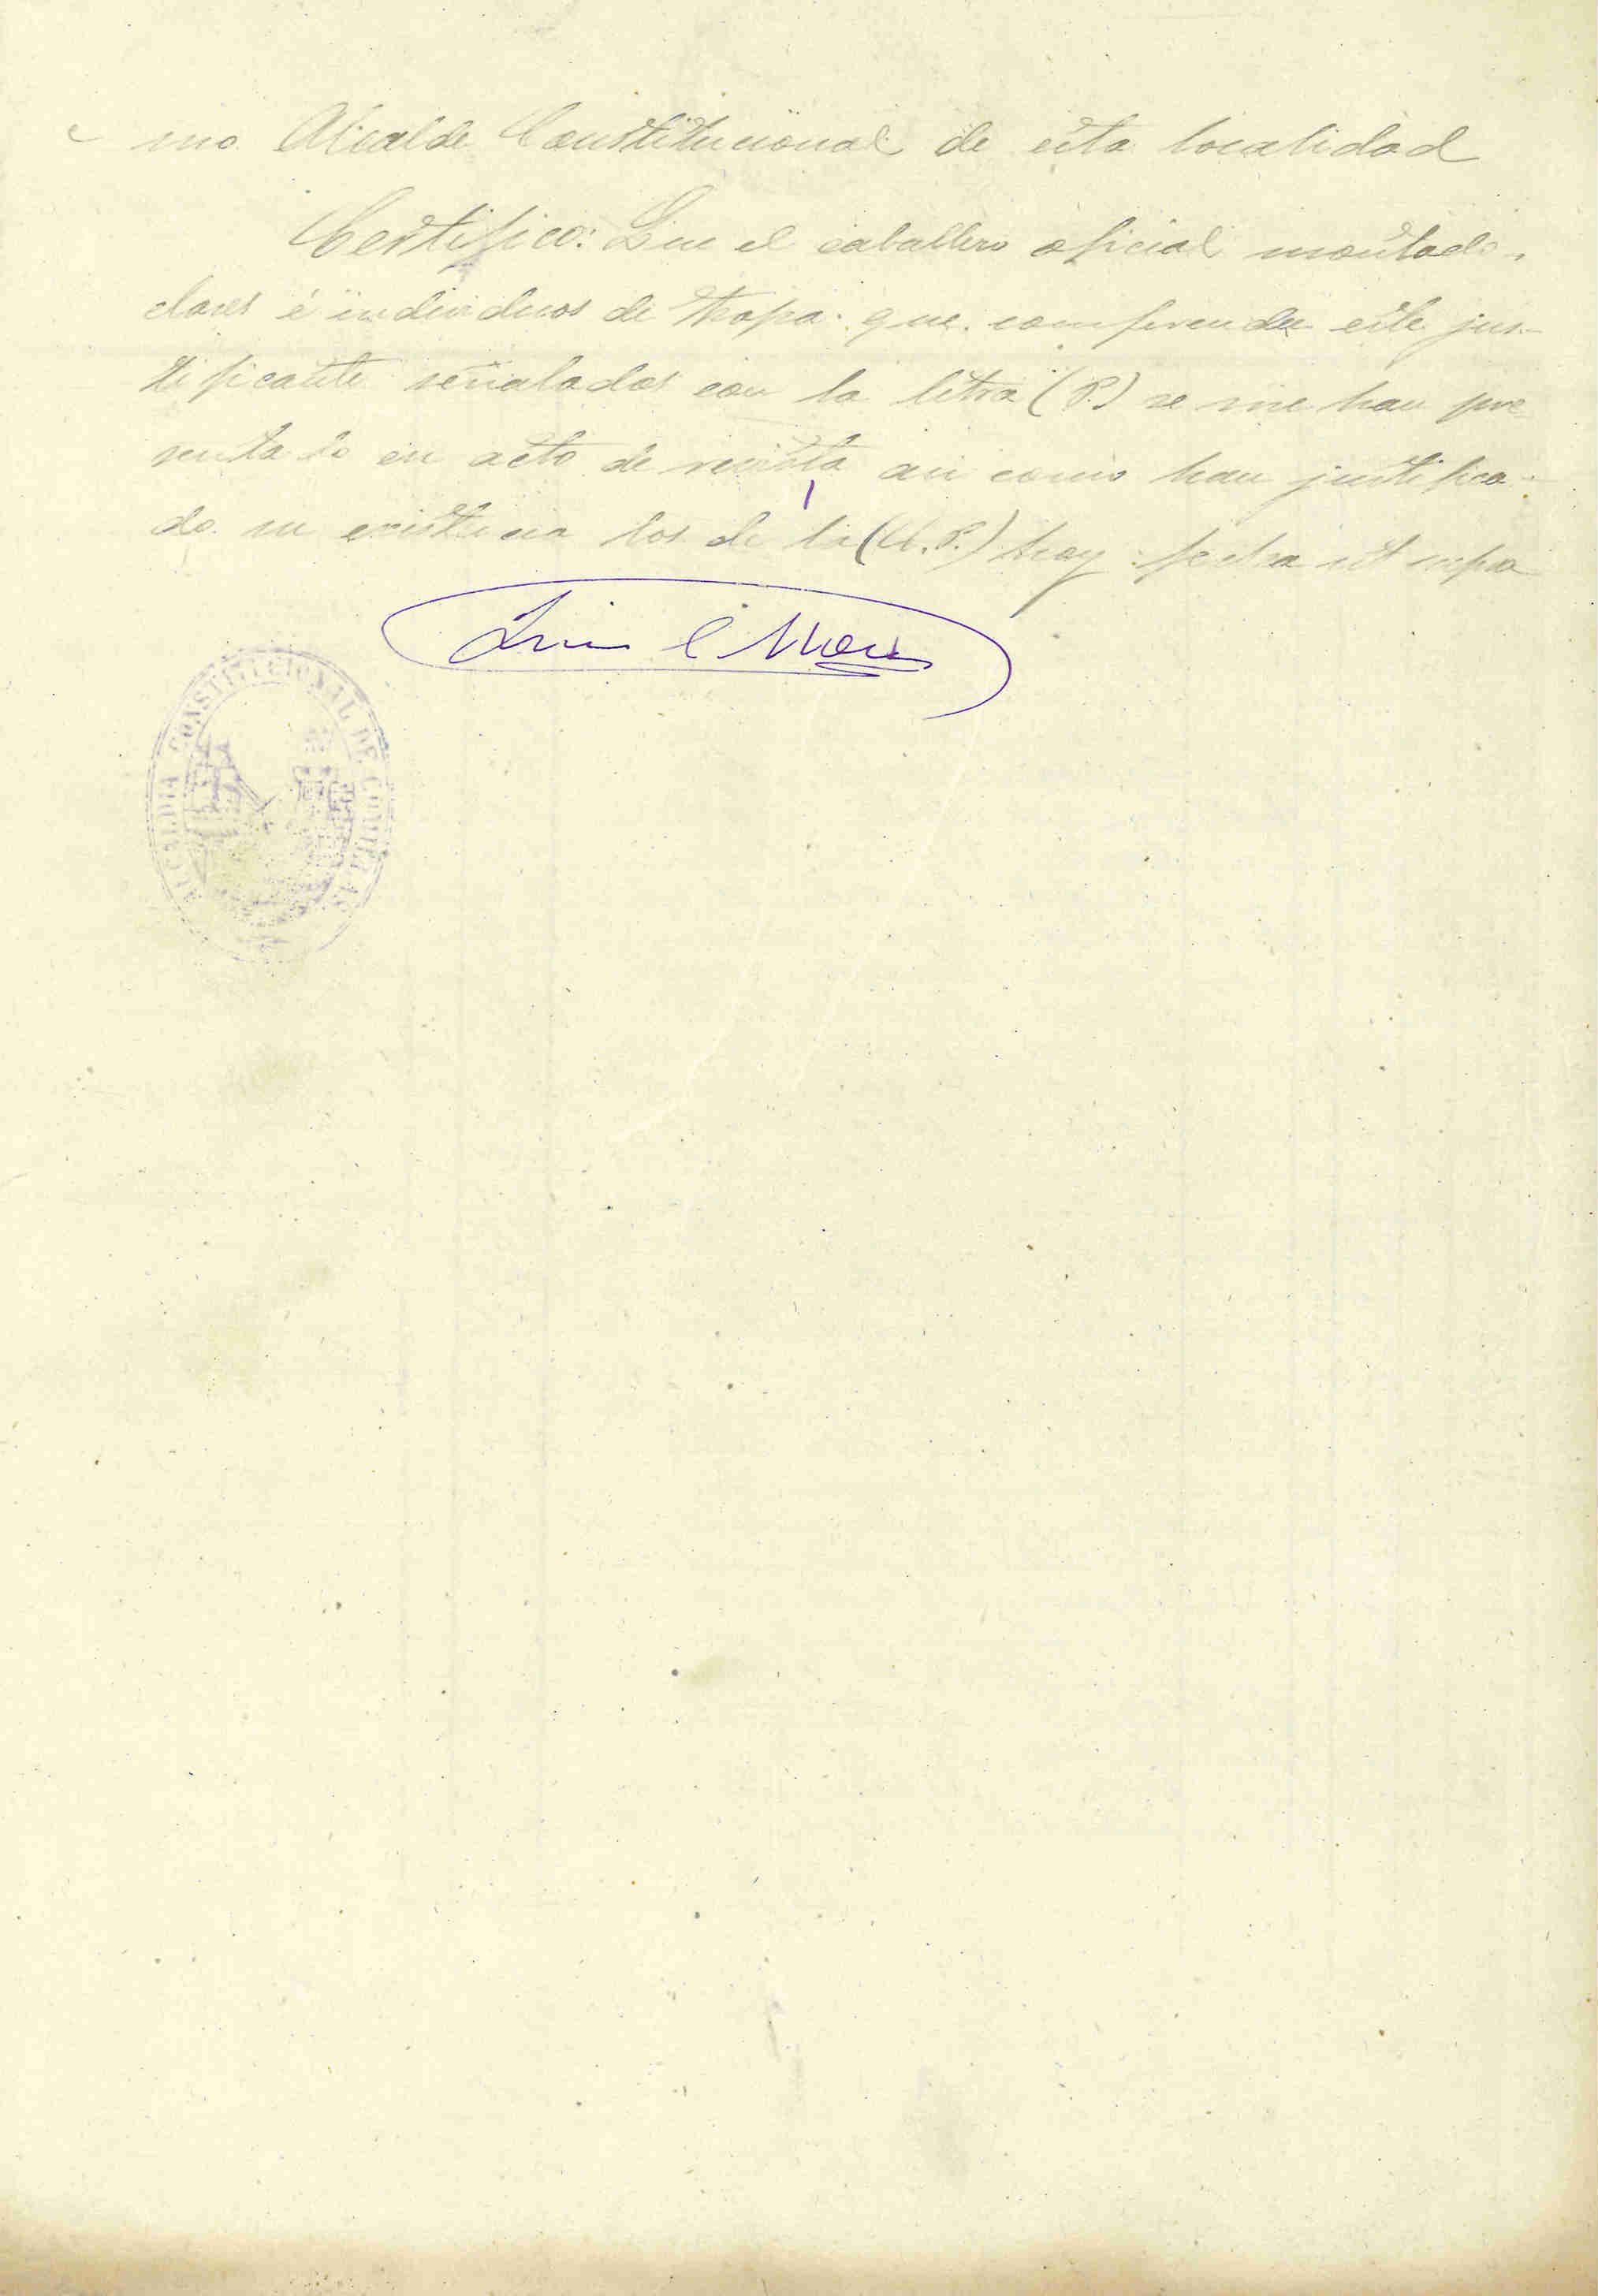 mo Alcalde Constitucional de esta localidad
Certifico: Que el caballero oficial montado,
clases é individuos de tropa que comprende este jus-
tificante señalados con la letra (P.) se me han pre
sentado en acto de revista asi como han justifica-
do su existencia los de la (A.P.) hoy fecha ut supra
ALCALDIA CONSTITUCIONAL DE